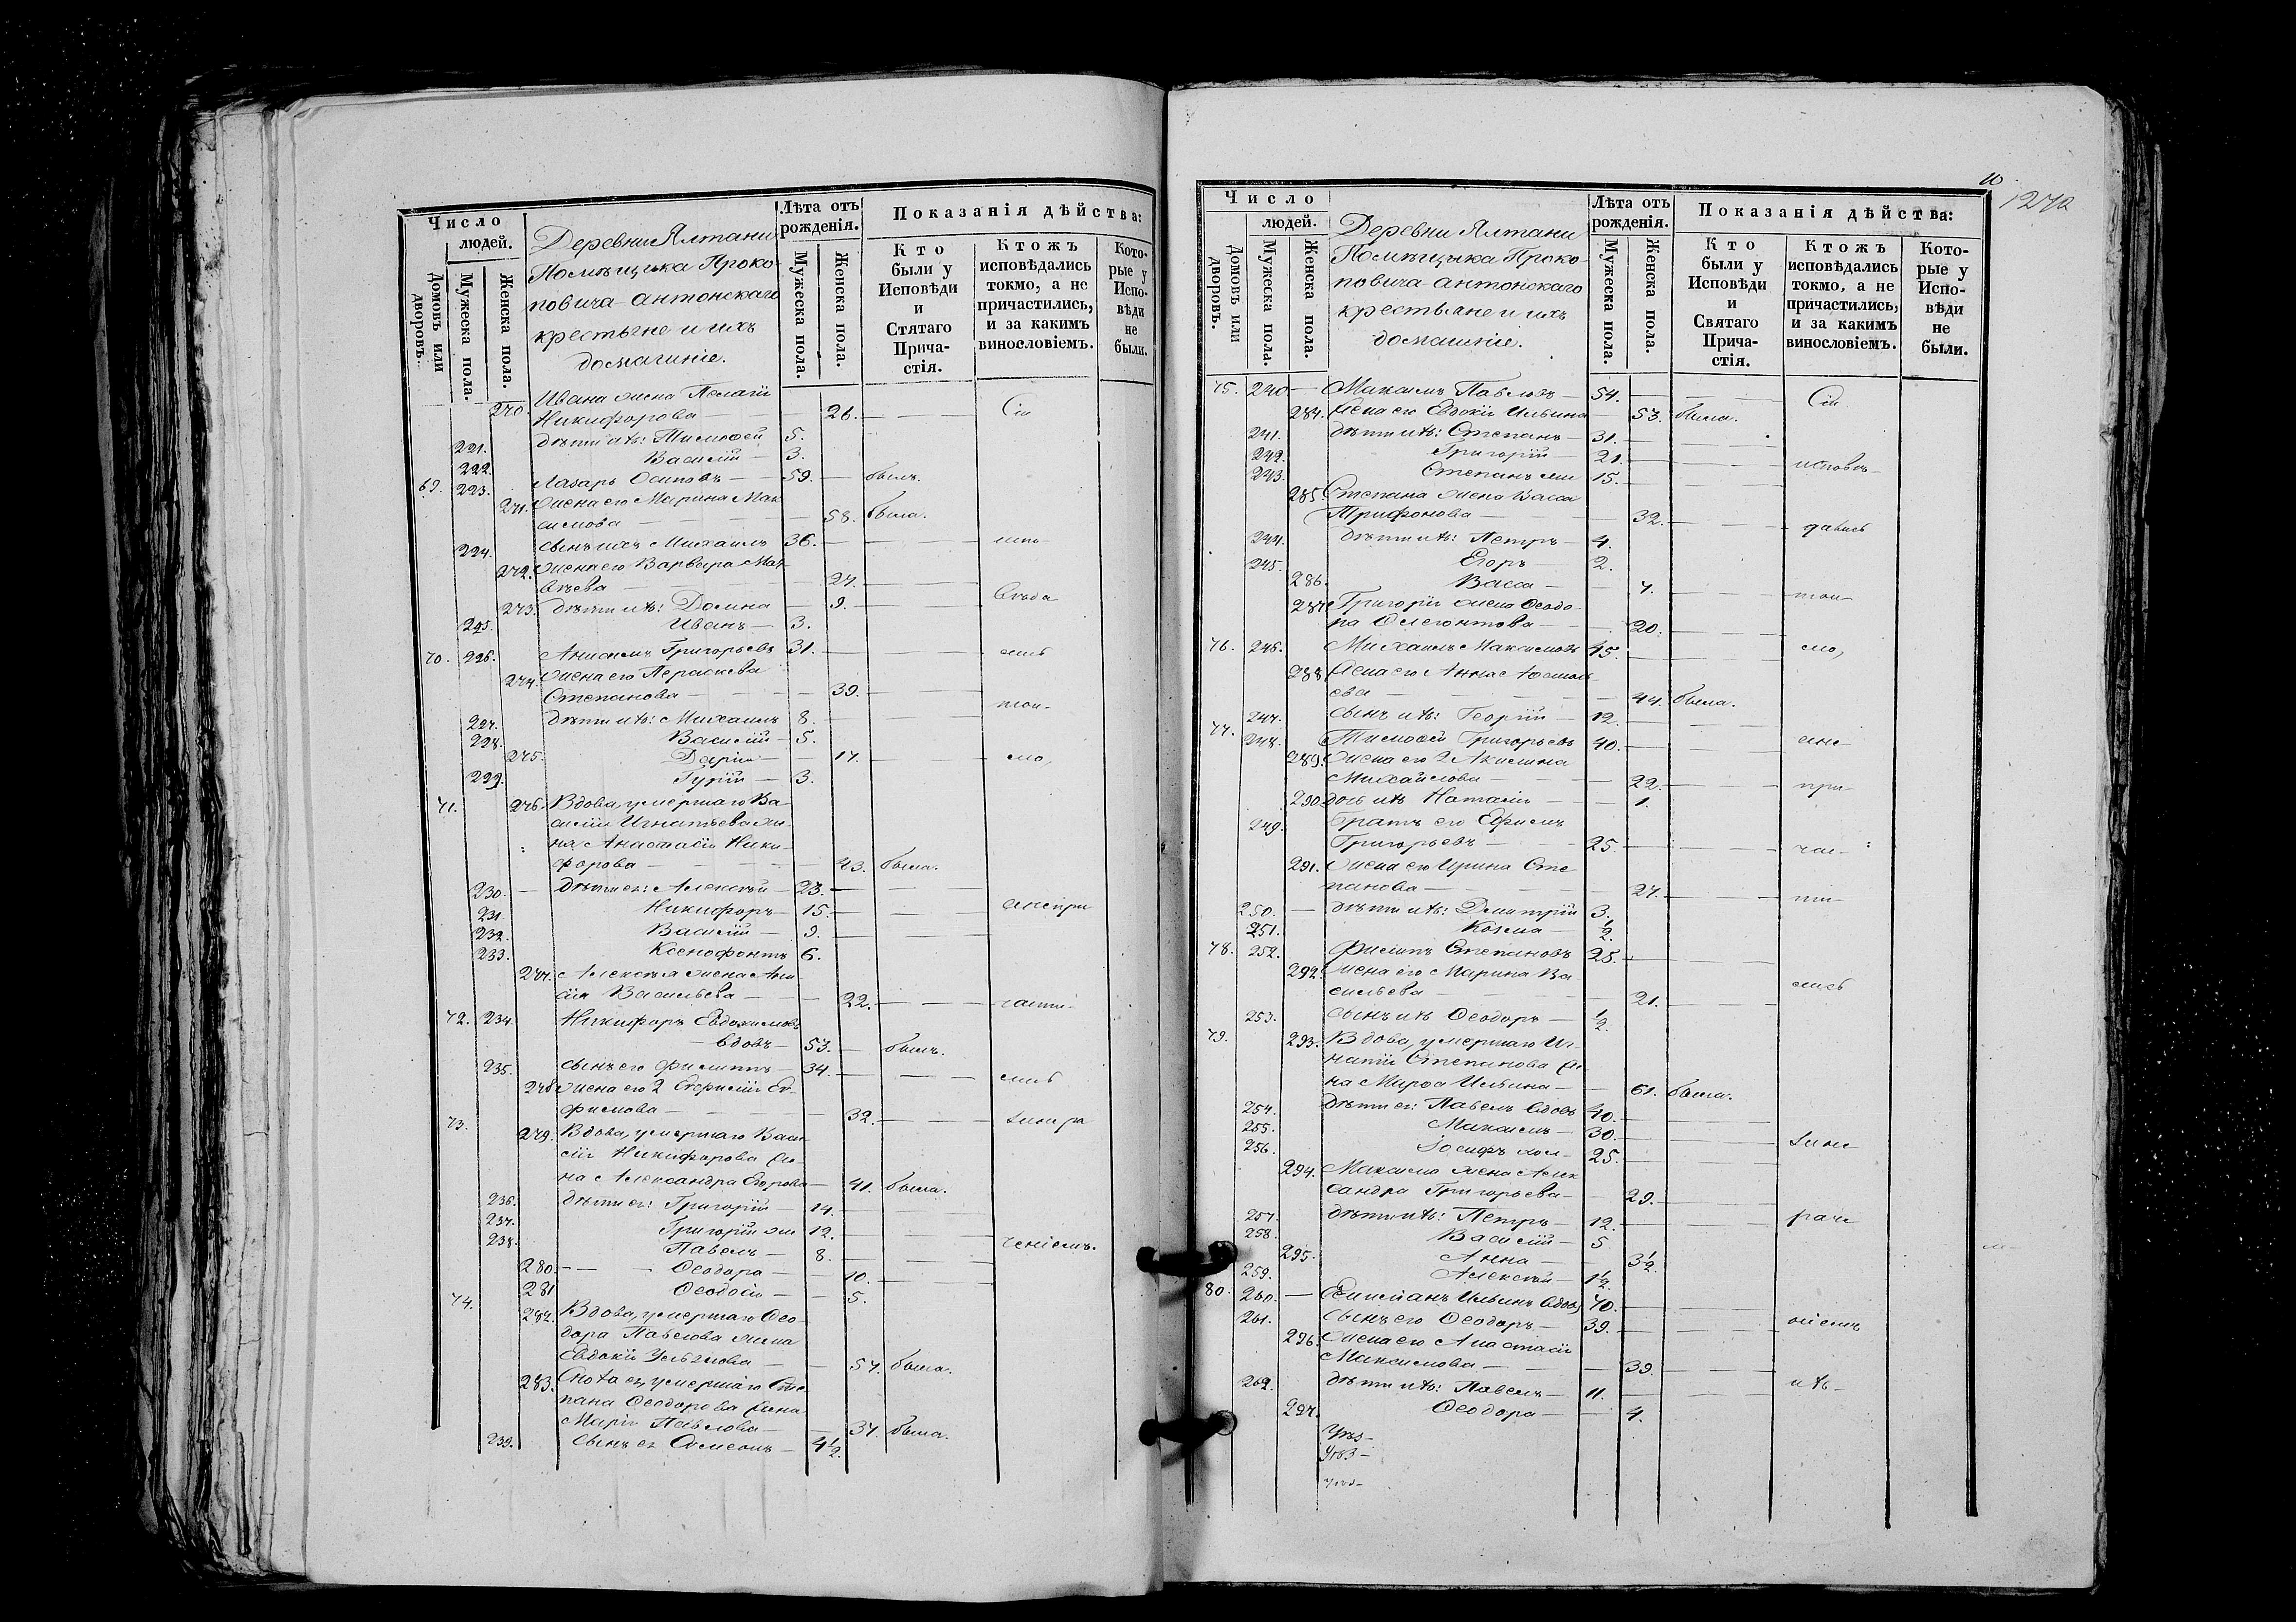 Число
людей.
Домовъ или дворовъ.
Мужеска пола.
Женска пола.
Деревни Ялтани
Помѣщика Проко-
повича-Антонскаго
крестьяне и ихъ
домашніе.
Лѣта отъ рожденія.
Мужеска пола.
Женска пола.
Показанія дѣйства:
Кто были у Исповѣди и Стятаго Прича-стія.
Ктожъ исповѣдались токмо, а не причастились, и за какимъ винословіемъ.
Кото-рые у Испо-вѣди не были.
270. Ивана жена Пелагія
Никифорова — 26. Сіи
221. дѣти ихъ: Тимофей 5.
222. Василій — 3.
69. 223. Лазарь Осиповъ — 59. — былъ.
271. Жена его Марина Мак-
симова — 58. была.
224. сынъ ихъ Михаилъ 36. испо-
272. Жена его Варвара Мат-
вѣева — 27.
273. дѣти ихъ: Домна — 9. вѣда-
225. Иванъ — 3.
70. 226. Анисимъ Григорьевъ 31. лись
274. Жена его Параскева
Степанова — 39.
227. дѣти ихъ: Михаилъ 8. ток-
228. Василій — 5.
275. Дарія — 17. мо,
229. Гурій — 3.
71. 276. Вдова, умершаго Ва-
силія Игнатьева же-
на Анастасія Ники-
форова — 43. была.
230. — дѣти ея: Алексѣй — 23.
231. Никифоръ — 15. а не при
232. Василій — 9.
233. Ксенофонтъ 6.
277. Алексѣя жена Ани-
сія Васильева — 22. части-
72. 234. Никифоръ Евдокимовъ
вдовъ — 53. — былъ.
235. сынъ его Филиппъ — 34. лись
278. Жена его 2 Евфимія Еѳ-
фимова — 32. за нера
73. 279. Вдова, умершаго Васи-
лія Никифорова же-
на Александра Егорова — 41. была.
236. дѣти ея: Григорій — 14.
237. Григорій же 12.
238. Павелъ — 8. ченіемъ.
280. Ѳеодора — 10.
281 Ѳеодосія — 5.
74. 282. Вдова, умершаго Ѳео-
дора Павлова жена
Евдокія Ульянова — 57. была.
283. Сноха ея, умершаго Сте-
пана Ѳеодорова жена
Марія Павлова — 37. была.
239. сынъ ея Симеонъ — 4 1/2.
10
1272
Число
людей.
Домовъ или дворовъ.
Мужеска пола.
Женска пола.
Деревни Ялтани
Помѣщика Проко-
повича-Антонскаго
крестьяне и ихъ
домашніе.
Лѣта отъ рожденія.
Мужеска пола.
Женска пола.
Показанія дѣйства:
Кто были у Исповѣди и Святаго Прича-стія.
Ктожъ исповѣдались токмо, а не причастились, и за какимъ винословіемъ.
Кото-рые у Испо-вѣди не были.
75. 240 — Максимъ Павловъ — 54. Сіи
284. Жена его Евдокія Ильина — 53. была.
241. дѣти ихъ: Степанъ — 31.
242. Григорій — 21. исповѣ-
243. Степанъ же 15.
285. Степана жена Васса
Трифонова — 32. дались
244. дѣти ихъ: Петръ — 4.
245. Егоръ 2.
286. Васса — 7. ток-
287. Григорія жена Ѳеодо-
ра — 20.
76. 246. Михаилъ Максимовъ 45. мо,
288. Жена его Анна
ева — 44. была.
247. сынъ ихъ: Георгій — 12.
77. 248. Тимофей Григорьевъ 40. а не-
289. Жена его 2 Акилина
Михайлова — 22. при-
290. дочь ихъ Наталія — 1.
249. Братъ его Ефимъ
Григорьевъ — 25. час-
291. Жена его Ирина Сте-
панова — 27. ти-
250. — дѣти ихъ: Димитрій 3.
251. Козма — 1/2.
78. 252. Филиппъ Степановъ 25.
292. Жена его Марина Ва-
сильева — 21. лись
253. сынъ ихъ Ѳеодоръ — 1/2.
79. 293. Вдова, умершаго Иг-
натія Степанова же-
на Ильина — 61. была.
254. Дѣти ея: Павелъ вдовъ 40.
255. Максимъ — 30. за не
256. Іосифъ хол — 25.
294. Максима жена Алек
сандра Григорьева — 29.
257. дѣти ихъ: Петръ — 12. раче
258. Василій — 5
295. Анна — 3 1/2.
259. Алексѣй — 1 1/2
80. 260. — Ильинъ вдовъ 70.
261. сынъ его Ѳеодоръ — 39. ніемъ
296. Жена его Анастасія
Максимова — 39.
262. дѣти ихъ: Павелъ — 11. ихъ —
297. Ѳеодора — 4.